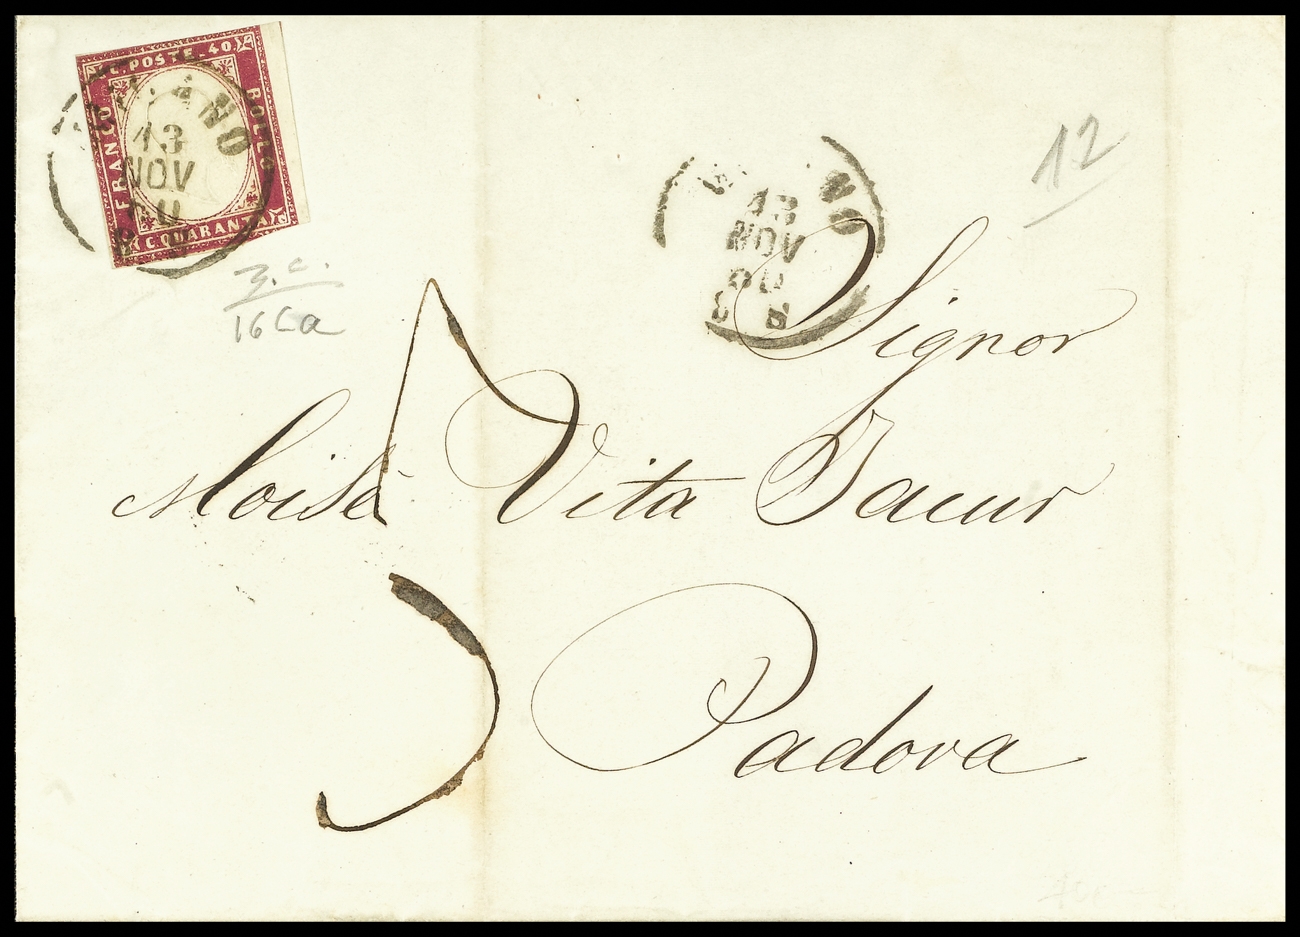 C. POSTE. 40
FRANCO
BOLLO
C. QUARANTA
13
NOV
60
13
NOV
60
12
3. c.
16 C a
Signor
Moisè Vita Jacur
Padova